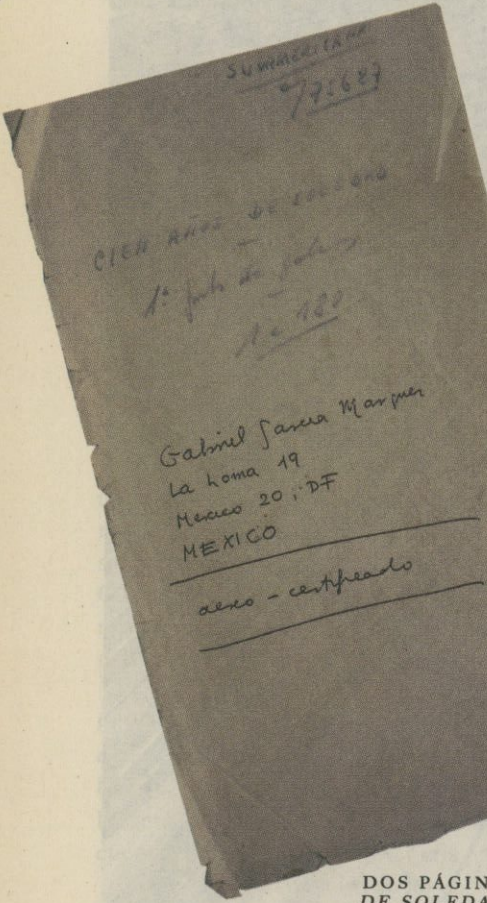 SUMMERICANA
6/7:687
CIEN AÑOS DE SOLEDAD
1ª
1 a 180
Gabriel Garcia Marquez
La Loma 19
Mexico 20, DF
MEXICO
aereo - certificado
DOS PÁGIN
DE SOLEDA